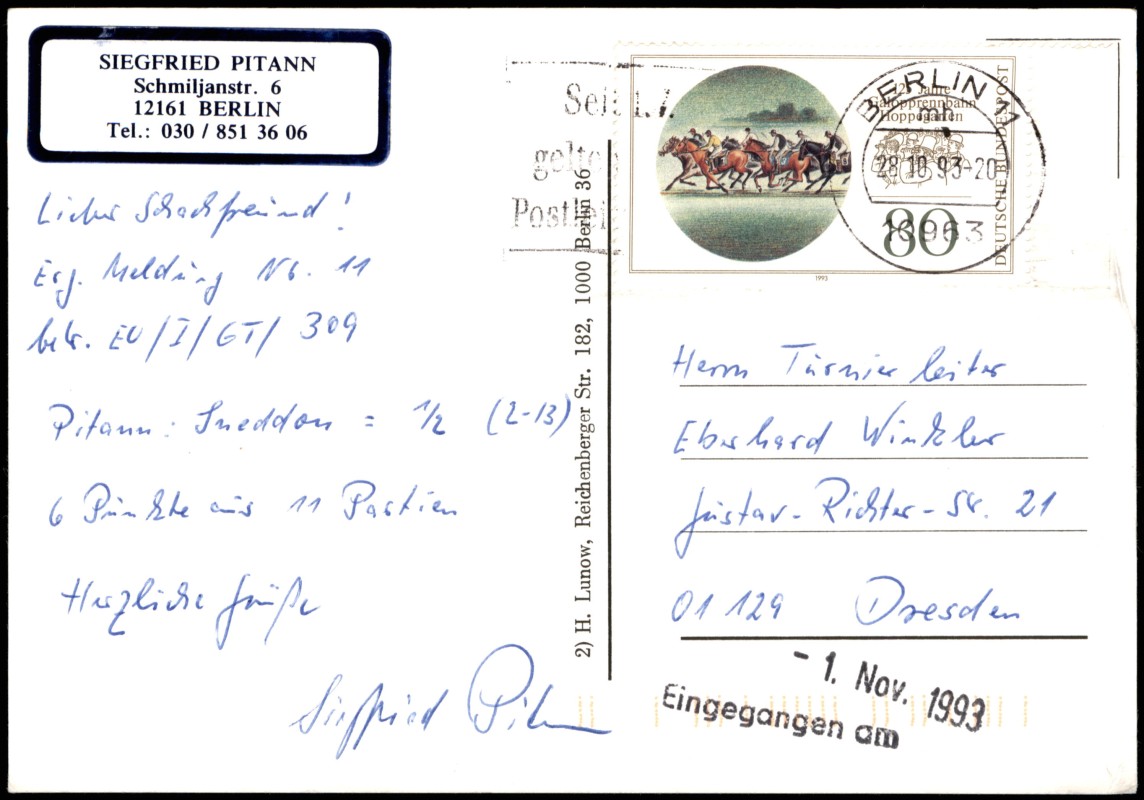 SIEGFRIED PITANN
Schmiljanstr. 6
12161 BERLIN
Tel.: 030 / 851 36 06
Lieber Schachfreund!
Erg. Meldung Nr. 11
betr. EU/I/GT/ 309
Pitann: Sneddon = 1/2 (2-13)
6 Punkte aus 11 Partien
Herzliche Grüße
Siegfried Pitann
2) H. Lunow, Reichenberger Str. 182, 1000 Berlin 36
Seit 1.7.
gelten
Postlei
125 Jahre
Galopprennbahn
Hoppegarten
DEUTSCHE BUNDESPOST
80
1993
BERLIN 11
mb
28.10.93-20
10963
Herrn Turnierleiter
Eberhard Winkler
Gustav-Richter-Str. 21
01129 Dresden
- 1. Nov. 1993
Eingegangen am